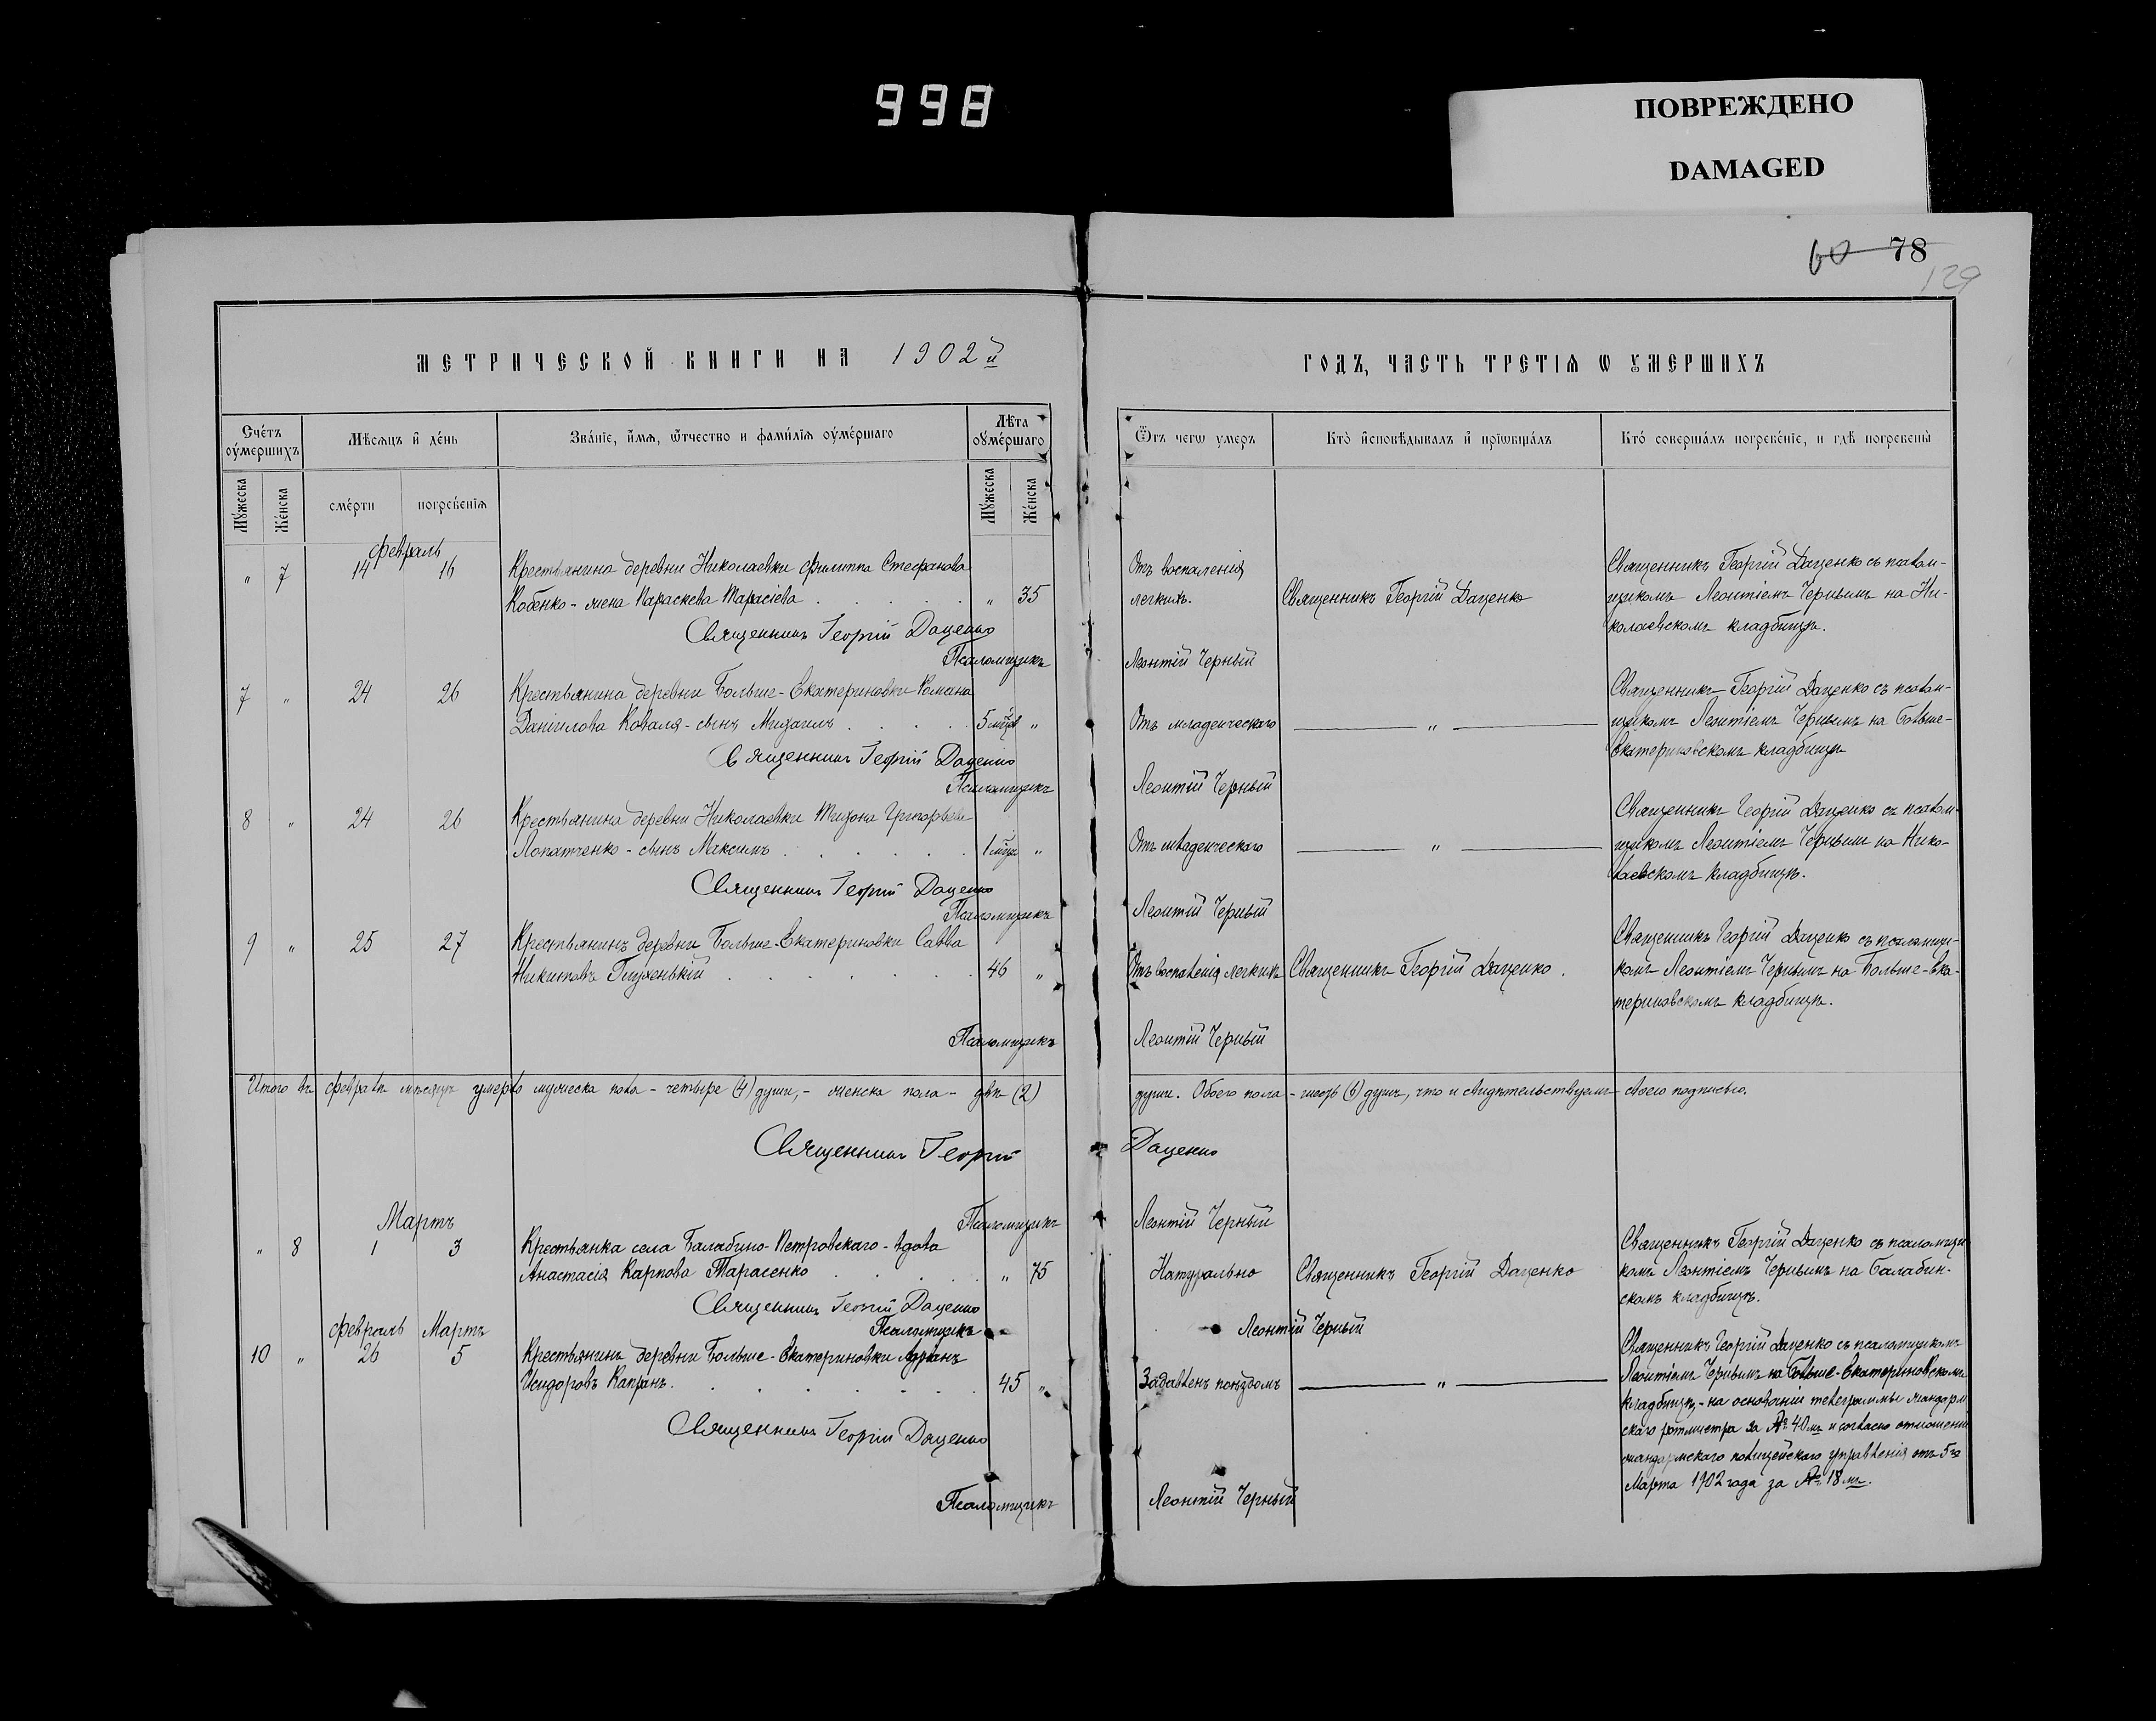 998
ПОВРЕЖДЕНО
DAMAGED
60 78
129
МЕТРИЧЕСКОЙ КНИГИ НА 1902й
ГОДЪ, ЧАСТЬ ТРЕТІЯ Ѡ ᲂУМЕРШИХЪ
Счетъ ᲂумершихъ
Мѣсяцъ и день
Званіе, имя, ѿчество и фамилія ᲂумершаго
Лѣта ᲂумершаго
Ѿъ чегѡ умеръ
Кто исповѣдывалъ и пріѡбщалъ
Кто совершалъ погребеніе, и гдѣ погребены
Мужеска
Женска
смерти
погребенія
Мужеска
Женска
Февраль
" 7 14 16 Крестьянина деревни Николаевки Филиппа Стефанова
Кобенко - жена Параскева Тарасіева " 35
Отъ воспаленія
легкихъ.
Священникъ Георгій Даценко
Священникъ Георгій Даценко съ псалом-
щикомъ Леонтіемъ Чернымъ на Ни-
колаевскомъ кладбищѣ.
Священникъ Георгій Даценко
Псаломщикъ Леонтій Черный
7 " 24 26 Крестьянина деревни Больше-Екатериновки Романа
Данилова Коваля - сынъ Михаилъ 5 мѣс "
Отъ младенческаго "
Священникъ Георгій Даценко съ псалом-
щикомъ Леонтіемъ Чернымъ на Больше-
Екатериновскомъ кладбищѣ
Священникъ Георгій Даценко
Псаломщикъ Леонтій Черный
8 " 24 26 Крестьянина деревни Николаевки Тихона Григорьева
Лопатченко - сынъ Максимъ 1 мѣс "
Отъ младенческаго "
Священникъ Георгій Даценко съ псалом-
щикомъ Леонтіемъ Чернымъ на Нико-
лаевскомъ кладбищѣ.
Священникъ Георгій Даценко
Псаломщикъ Леонтій Черный
9 " 25 27 Крестьянинъ деревни Больше-Екатериновки Савва
Никитовъ 46 "
Отъ воспаленія легкихъ Священникъ Георгій Даценко.
Священникъ Георгій Даценко съ псаломщи-
комъ Леонтіемъ Чернымъ на Больше-Ека-
териновскомъ кладбищѣ.
Псаломщикъ Леонтій Черный
Итого въ февралѣ мѣсяцѣ умерло мужеска пола - четыре (4) души, - женска пола - двѣ (2)
души. Обоего пола - шесть (6) душъ, что и свидѣтельствуемъ своею подписью.
Священникъ Георгій Даценко
Псаломщикъ Леонтій Черный
Мартъ
" 8 1 3 Крестьянка села Балабино-Петровскаго - вдова
Анастасія Карпова Тарасенко " 75
Натурально Священникъ Георгій Даценко
Священникъ Георгій Даценко съ псаломщи-
комъ Леонтіемъ Чернымъ на Балабин-
скомъ кладбищѣ.
Священникъ Георгій Даценко
Псаломщикъ Леонтій Черный
Февраль Мартъ
10 " 26 5 Крестьянинъ деревни Больше-Екатериновки Адріанъ
Исидоровъ Капранъ. 45 "
Задавленъ поѣздомъ "
Священникъ Георгій Даценко съ псаломщикомъ
Леонтіемъ Чернымъ на Больше-Екатериновскомъ
кладбищѣ - на основаніи телеграммы жандарм
скаго ротмистра за № 40мъ и согласно отношенія
жандармскаго полицейскаго управленія отъ 5го
Марта 1902 года за № 18мъ.
Священникъ Георгій Даценко
Псаломщикъ Леонтій Черный